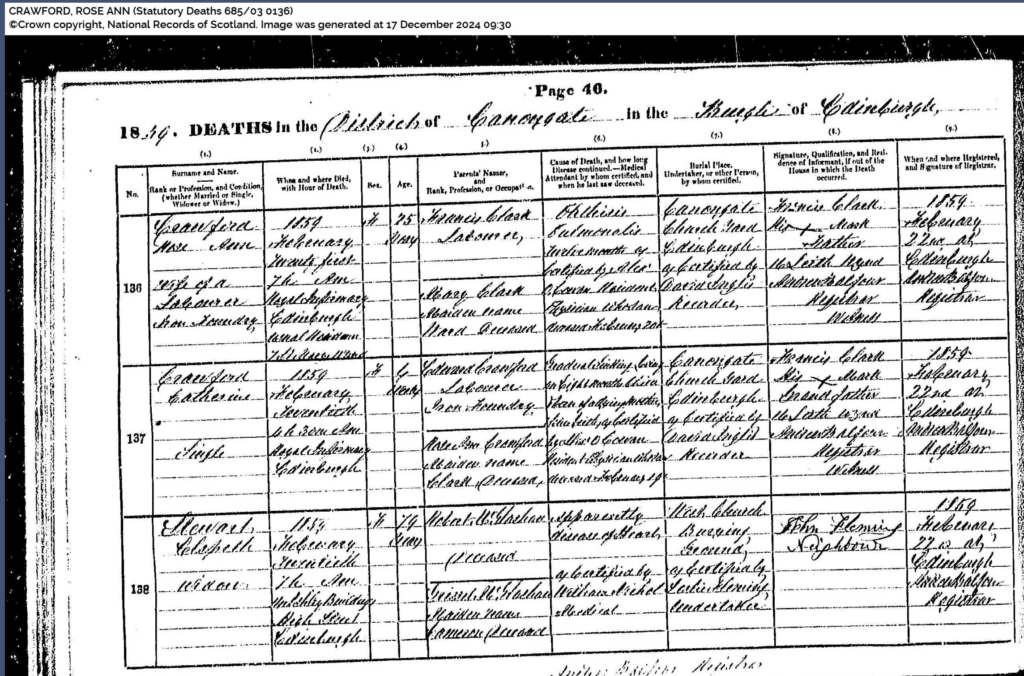 CRAWFORD, ROSE ANN (Statutory Deaths 685/03 0136)
©Crown copyright, National Records of Scotland. Image was generated at 17 December 2024 09:30
Page 46.
1859. DEATHS in the District of Canongate in the Burgh of Edinburgh,
(1.) (2.) (3.) (4.) (5.) (6.) (7.) (8.) (9.)
No.
Surname and Name.
Rank or Profession, and Condition,
(whether Married or Single,
Widower or Widow.)
When and where Died,
with Hour of Death.
Sex.
Age.
Parents' Names,
and
Rank, Profession, or Occupation.
Cause of Death, and how long
Disease continued.—Medical
Attendant by whom certified, and
when he last saw deceased.
Burial Place,
Undertaker, or other Person,
by whom certified.
Signature, Qualification, and Resi-
dence of Informant, if out of the
House in which the Death
occurred.
When and where Registered,
and Signature of Registrar.
136
Crawford
Rose Ann
Wife of a
Labourer
Iron Foundry
1859
February
Twenty first
7h Am
Royal Infirmary
Edinburgh
F
25
Years
Francis Clark
Labourer,
Mary Clark
Maiden name
Ward Deceased
Phthisis
Pulmonalis
Twelve months as
Certified by Alex
Cowan Resident
Physician who saw
deceased February
Canongate
Church Yard
Edinburgh
as Certified by
David Inglis
Recorder,
Francis Clark
His x Mark
Father
Leith Wynd
Andrew Balfour
Registrar
Witness
1859.
February
22nd at
Edinburgh
Andrew Balfour
Registrar
137
Crawford
Catherine
Single
1859
February
Twentieth
4h 30m Am
Royal Infirmary
Edinburgh
F
Edward Crawford
Labourer
Iron Foundry
Rose Ann Crawford
Maiden name
Clark, Deceased,
as Certified
Cowan
Resident Physician who saw
deceased February 19
Canongate
Church Yard
Edinburgh
as Certified by
David Inglis
Recorder
Francis Clark
His x Mark
Grandfather
Leith Wynd
Andrew Balfour
Registrar
Witness
1859
February
22nd at
Edinburgh
Andrew Balfour
Registrar
138
Stewart,
Elspeth
Widow
1859
February
Twentieth
7h Am
Buildings
High Street
Edinburgh
F
79
Years
Robert McGlashan
Deceased
McGlashan
Maiden name
Cameron Deceased
Apparently
disease of Heart,
as Certified by
William Nichol
Medical
West Church
Burying
Ground,
as Certified by
Leslie Fleming
Undertaker
John Fleming
Neighbour
1859
February
22nd at
Edinburgh
Andrew Balfour
Registrar
Andrew Balfour Registrar